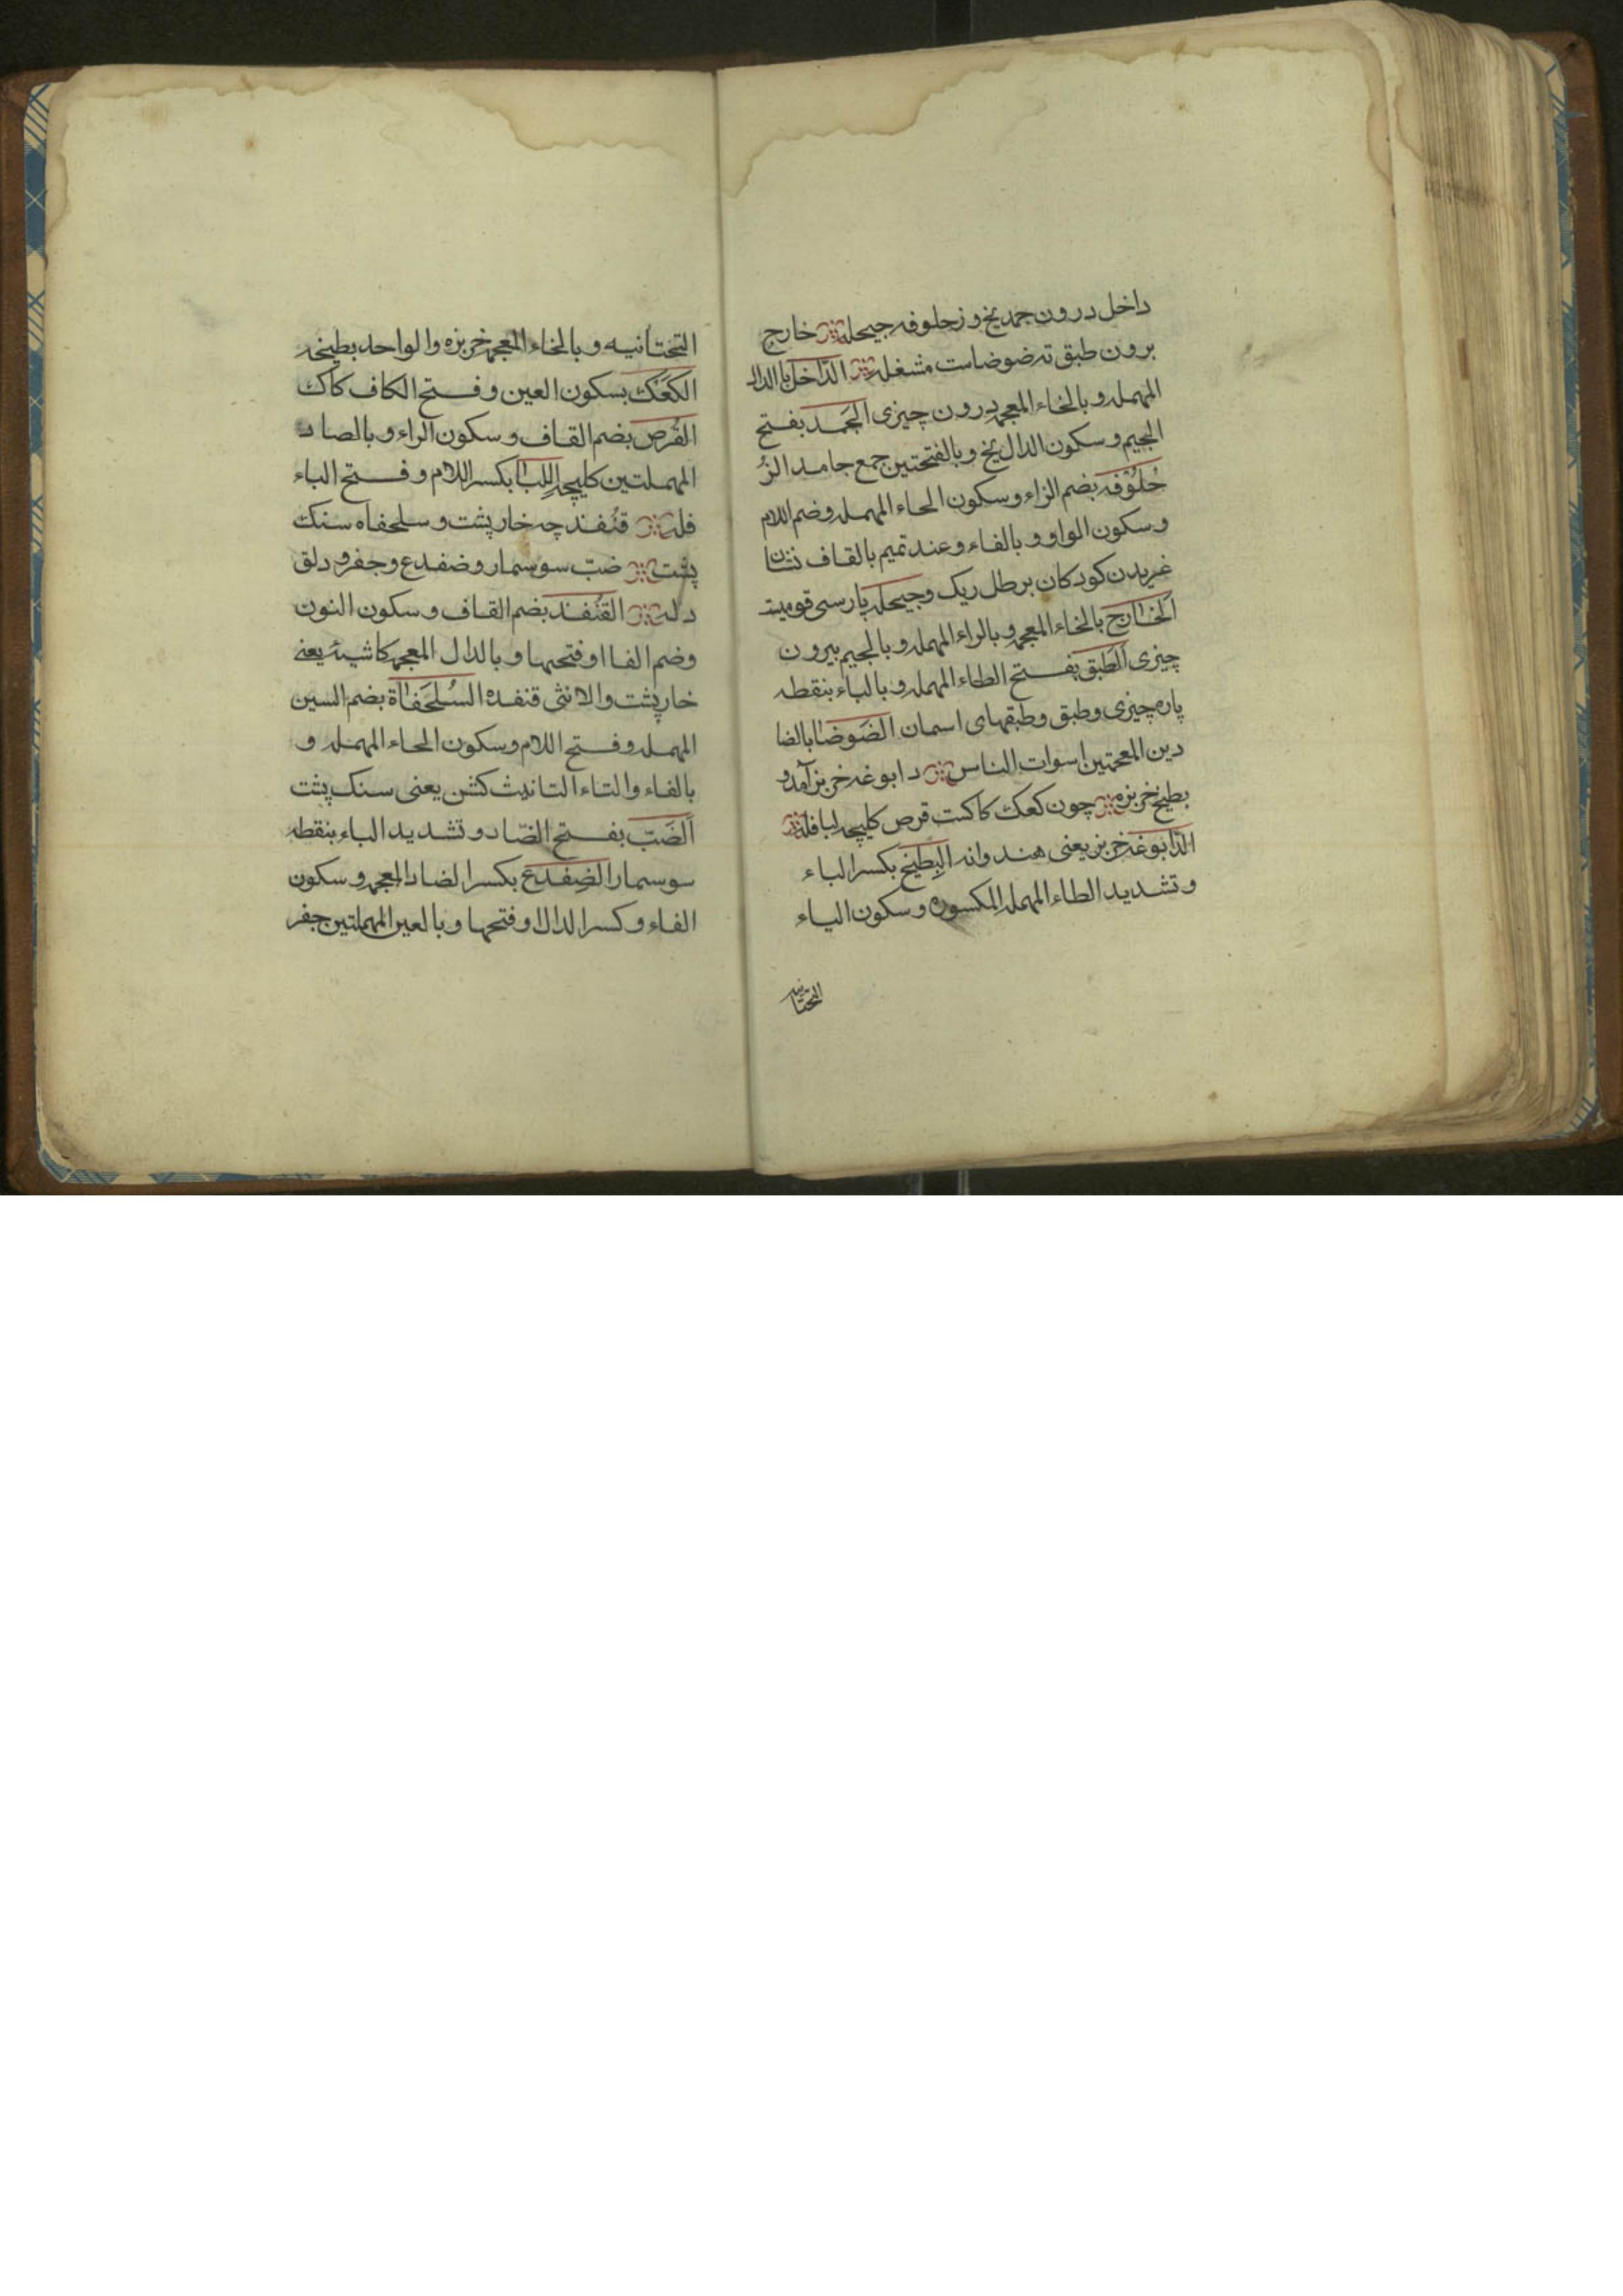 داخل درون جمد یخ و زحلوفه جیحله خارج
برون طبق ته ضوضاست مشغله الدّاخل بالدال
المهمله و بالخاء المعجمه درون چیزی الجَمد بفتح
الجیم و سکون الدال یخ و بالفتحتین جمع جامد الزُ
حْلُوْفه بضم الزاء و سکون الحاء المهمله و ضم اللام
و سکون الواو و بالفاء و عند تمیم بالقاف
غریدن کودکان بر طل ریک و جیحله پارسی
الخارج بالخاء المعجمه و بالراء المهمله و بالجیم بیرون
چیزی الطَبق بفتح الطاء المهمله و بالباء بنقطه
پاره چیزی و طبق و طبقهای اسمان الضَوضا بالضا
دین المعجمتین اسوات الناس دابوغه خربز آمد و
بطیخ خربزه چون کعک کاکست قرص کلیچه لبا فله
الدّابوغه خربز یعنی هندوانه البِطیخ بکسر الباء
و تشدید الطاء المهمله المکسوره و سکون الیاء
التحتانیه
التحتانیه و بالخاء المعجمه خربزه و الواحد بطیخه
الکَعَک بسکون العین و فتح الکاف کاک
القُرص بضم القاف و سکون الراء و بالصاد
المهملتین کلیچه اللِبا بکسر اللام و فتح الباء
فله قنُفند چه خار پشت و سلحفاه سنک
پشت ضبّ سوسمار و ضفدع و جفر و دلق
دله القنُفند بضم القاف و سکون النون
و ضم الفا او فتحها و بالدال المعجمه کاشیئ یعنی
خار پشت و الانثی قنفده السُلحَفاة بضم السین
المهمله و فتح اللام و سکون الحاء المهمله و
بالفاء و التاء التانیث کشن یعنی سنک پشت
الضَبّ بفتح الضّاد و تشدید الباء بنقطه
سوسمار الضِفدع بکسر الضاد المعجمه و سکون
الفاء و کسر الدال او فتحها و بالعین المهملتین جفر